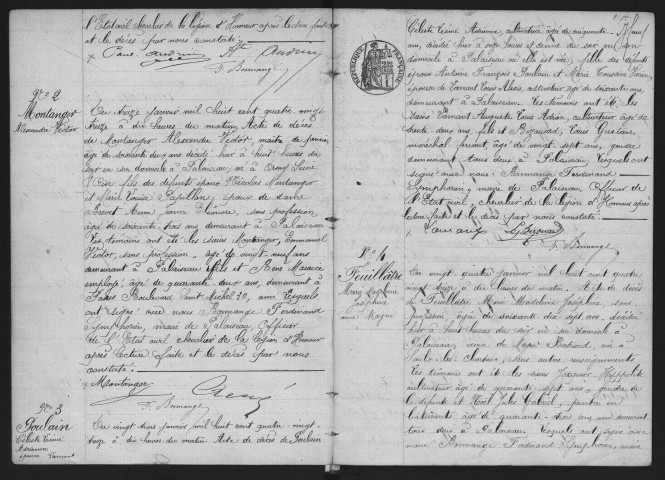 l'Etat civil chevalier de la légion d'Honneur après lecture faite
et le décès par nous constaté.
F. Bonnange
N° 2
Montanger
Alexandre Victor
Ce treize janvier mil huit cent quatre vingt
treize à dix heures du matin, Acte de décès
de Montanger Alexandre Victor, maître de
âgé de soixante ans décédé hier à huit heures du
soir en son domicile à Palaiseau, né à
fils des défunts époux Nicolas Montanger
et Marie Louise Papillon; époux de dame
Honorine, sans profession,
âgée de soixante trois ans demeurant à Palaiseau
Les témoins ont été les sieurs Montanger, Emmanuel
Victor, sans profession, âgé de vingt neuf ans,
demeurant à Palaiseau fils et Maurice
employé, âgé de quarante deux ans, demeurant à
Paris Boulevard Saint Michel 30, ami lesquels
ont signé avec nous Bonnange Ferdinand
Symphorien, maire de Palaiseau, Officier
de l'Etat civil Chevalier de la légion d'Honneur
après lecture faite et le décès par nous
constaté.
Montanger
F. Bonnange
N° 3
Poulain
Céleste
Adrienne
épouse Tarnant
Ce vingt trois janvier mil huit cent quatre vingt
treize à dix heures du matin Acte de décès de Poulain
Céleste Adrienne, cultivatrice âgée de cinquante
ans, décédée hier à onze heures et demie du soir en son
domicile à Palaiseau où elle est née, fille des défunts
époux Antoine François Poulain et Marie
épouse de Tarnant Louis Alexis, cultivateur âgé de soixante ans,
demeurant à Palaiseau. Les témoins ont été les
sieurs Tarnant Auguste Louis Adrien, cultivateur âgé de
trente deux ans, fils et Bézouard, Louis Gustave
maréchal ferrant, âgé de vingt sept ans, gendre
demeurant tous deux à Palaiseau, lesquels ont
signé avec nous Bonnange Ferdinand
Symphorien, maire de Palaiseau, Officier de
l'Etat civil, chevalier de la légion d'Honneur après
lecture faite et le décès par nous constaté.
Bézouard
F. Bonnange
N° 4
Feuillâtre
Marie
Joséphine
Ce vingt quatre janvier mil huit cent quatre
vingt treize à dix heures du matin. Acte de décès
de Feuillâtre Marie Madeleine Joséphine, sans
profession, âgée de soixante dix sept ans, décédée
hier à huit heures du soir en son domicile à
Palaiseau, veuve de Bertrand, née à
Saulx-les-Chartreux, sans autres renseignements
Les témoins ont été les sieurs Hippolyte
cultivateur âgé de quarante sept ans, gendre de
la défunte et Jules Gabriel, peintre en
bâtiments âgé de quarante trois ans demeurant
tous deux à Palaiseau. Lesquels ont signé avec
nous Bonnange Ferdinand Symphorien, maire